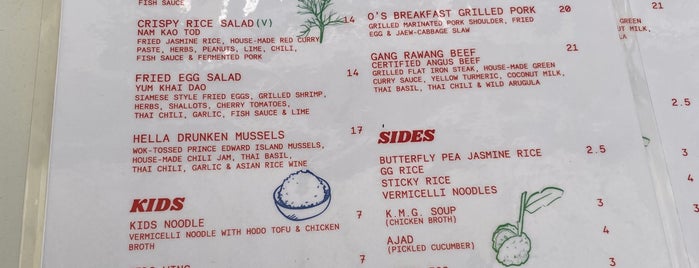 FISH SAUCE
CRISPY RICE SALAD(V) 14
NAM KAO TOD
FRIED JASMINE RICE, HOUSE-MADE RED CURRY
PASTE, HERBS, PEANUTS, LIME, CHILI,
FISH SAUCE & FERMENTED PORK
FRIED EGG SALAD 14
YUM KHAI DAO
SIAMESE STYLE FRIED EGGS, GRILLED SHRIMP,
HERBS, SHALLOTS, CHERRY TOMATOES,
THAI CHILI, GARLIC, FISH SAUCE & LIME
HELLA DRUNKEN MUSSELS 17
WOK-TOSSED PRINCE EDWARD ISLAND MUSSELS,
HOUSE-MADE CHILI JAM, THAI BASIL,
THAI CHILI, GARLIC & ASIAN RICE WINE
KIDS
KIDS NOODLE 7
VERMICELLI NOODLE WITH HODO TOFU & CHICKEN
BROTH
7
O'S BREAKFAST GRILLED PORK 20
GRILLED MARINATED PORK SHOULDER, FRIED
EGG & JAEW-CABBAGE SLAW
GANG RAWANG BEEF 21
CERTIFIED ANGUS BEEF
GRILLED FLAT IRON STEAK, HOUSE-MADE GREEN
CURRY SAUCE, YELLOW TURMERIC, COCONUT MILK,
THAI BASIL, THAI CHILI & WILD ARUGULA
SIDES
BUTTERFLY PEA JASMINE RICE 2.5
GG RICE
STICKY RICE
VERMICELLI NOODLES
K.M.G. SOUP 3
(CHICKEN BROTH)
AJAD 4
(PICKLED CUCUMBER)
3
21
GREEN
UT MILK,
2.5
3
4
3